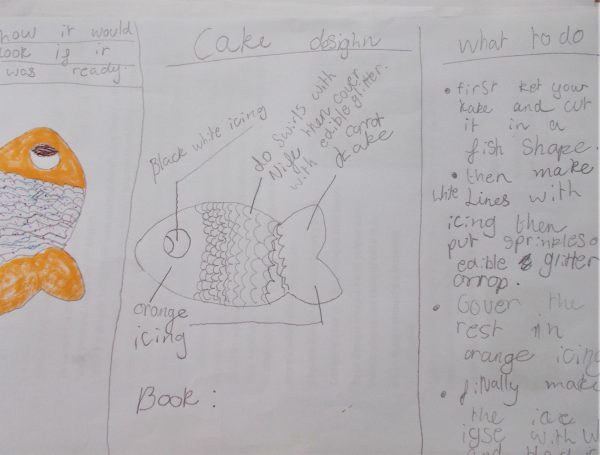 how it would
look if it
was ready.
Cake designn
Black white icing
do swirls with
Nife then cover
with edible glitter.
carrot
kake
orange
icing
Book :
what to do
• first ket your
kake and cut
it in a
fish shape.
• then make
white Lines with
icing then
put sprinkles o
edible glitter
on top.
• Cover the
rest in
orange icing
• finally make
the
with w
and black